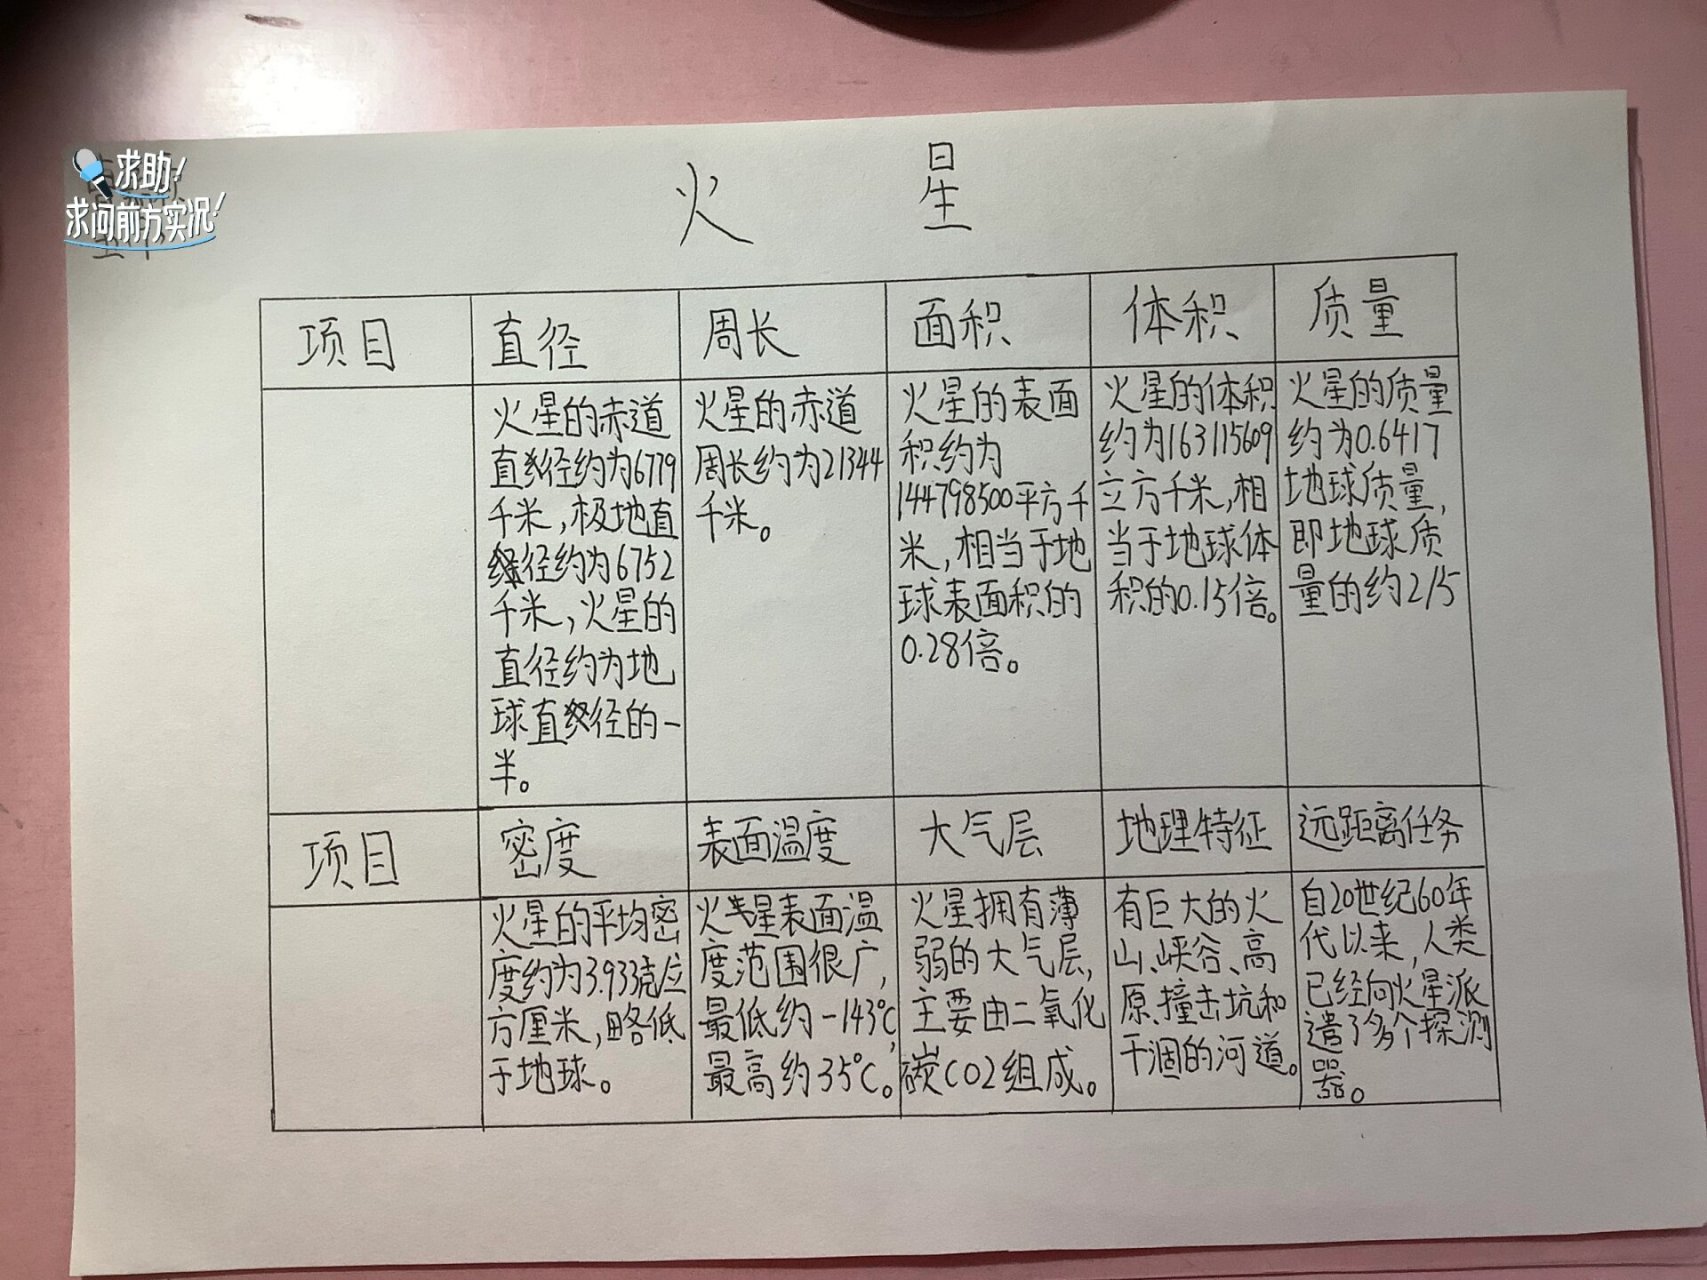 求助!
求问前方实况!
火 星
项目 直径 周长 面积 体积 质量
火星的赤道
直径约为6779
千米,极地直
径约为6752
千米,火星的
直径约为地
球直径的一
半。
火星的赤道
周长约为21344
千米。
火星的表面
积约为
144798500平方千
米,相当于地
球表面积的
0.28倍。
火星的体积
约为163115609
立方千米,相
当于地球体
积的0.15倍。
火星的质量
约为0.6417
地球质量,
即地球质
量的约2/5
项目 密度 表面温度 大气层 地理特征 远距离任务
火星的平均密
度约为3.933克立
方厘米,略低
于地球。
火星表面温
度范围很广,
最低约-143℃,
最高约35℃。
火星拥有薄
弱的大气层,
主要由二氧化
碳CO2组成。
有巨大的火
山、峡谷、高
原、撞击坑和
干涸的河道。
自20世纪60年
代以来,人类
已经向火星派
遣了多个探测
器。